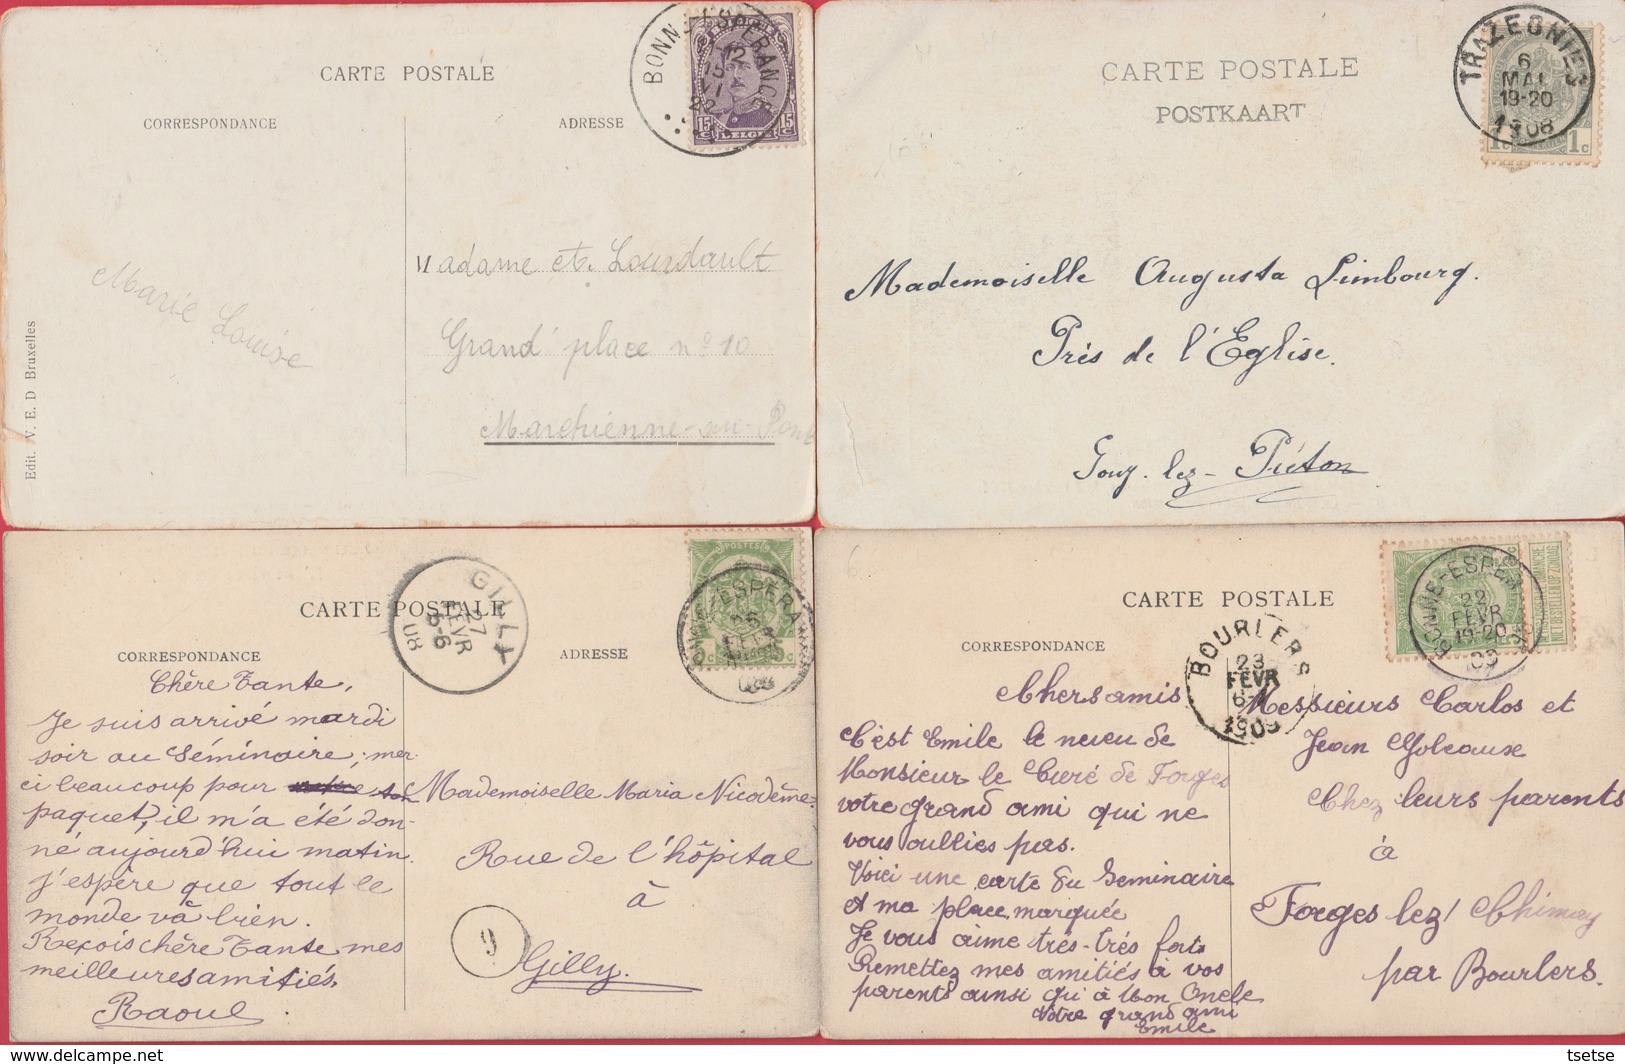 CARTE POSTALE
CORRESPONDANCE
ADRESSE
BONNE-ESPERANCE
12
15
VI
22
15c 15c
BELGIE
Marie Louise
Madame et. Lourdault
Grand' place nº 10
Marchienne-au-Pont
Edit. V. E. D Bruxelles
CARTE POSTALE
POSTKAART
TRAZEGNIES
6
MAI
19-20
1908
1c 1c
Mademoiselle Augusta Limbourg.
Près de l'Eglise.
Gouy-lez-Piéton
CARTE POSTALE
CORRESPONDANCE
ADRESSE
GILLY
27
FEVR
5-6
08
POSTES
26
FEVR
08
Chère Tante,
Je suis arrivé mardi
soir au Séminaire; mer-
ci beaucoup pour ton
paquet, il m'a été don-
né aujourd'hui matin.
J'espère que tout le
monde va bien.
Reçois chère Tante, mes
meilleures amitiés.
Raoul
Mademoiselle Maria Nicodème
Rue de l'hôpital
à
9
Gilly.
CARTE POSTALE
CORRESPONDANCE
BOURLERS
23
FEVR
6-
1909
BONNE-ESPERANCE
22
FEVR
19-20
09
NIET BESTELLEN OP ZONDAG
Chers amis
C'est Emile le neveu de
Monsieur le Curé de Forges
votre grand ami qui ne
vous oublies pas.
Voici une carte du Seminaire
et ma place marquée
Je vous aime très-très fort
Remettez mes amitiés à vos
parents ainsi qu'à Mon Oncle
Votre grand ami
Emile
Messieurs Carlos et
Jean
Chez leurs parents
à
Forges lez/ Chimay
par Bourlers.
tsetse